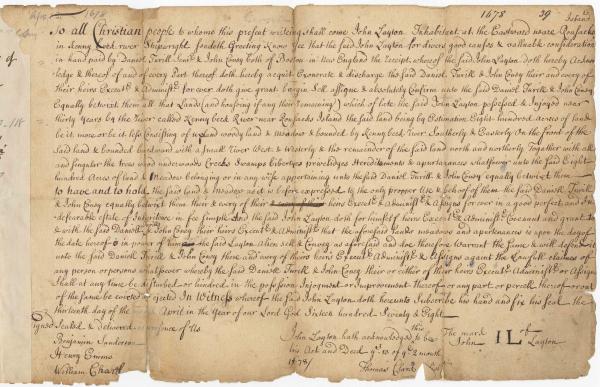 1678
1678
39
Island
To all Christian people to whome this present writing shall come John Layton Inhabitant at the Eastward neare Rousacks
in Kenny Beck river Shipwright sendeth Greeting Know Yee that the said John Layton for divers good causes & valuable consideration
in hand paid by Daniel Turill Senr & John Cony both of Boston in New England the receipt whereof the said John Layton doth hereby Acknow
ledge & thereof and of every Part thereof doth hereby acquit Exonerate & discharge the said Daniel Turill & John Cony their and every of
their heires Executrs & Administrs for ever doth give grant bargain sell assigne & absolutely Confirm unto the said Daniel Turill & John Cony
Equally betwixt them all that Land (and housing if any there remaining) which of late the said John Layton possessed & Injoyed near
thirty years by the River called Kenny beck River near Rousacks Island the said land being by Estimation Eight hundred Acres of land
be it more or be it less Consisting of upland woody land & Meadow & bounded by Kenny beck river Southerly & Easterly On the front of the
said land & bounded backward with a Small River West & Westerly & the remainder of the said land north and northerly Together with all
and singular the trees wood underwoods Creeks Swamps liberties priveledges Hereditaments & apurtenances whatsoever unto the said Eight
hundred Acres of land & Meadow belonging or in any wise appertaining unto the said Daniel Turill & John Cony equally betwixt them
To have and to hold the said land & Meadow as is before expressed to the only propper Use & behoof of them the said Daniell Turill
& John Cony equally betwixt them their & every of their heires Executrs & Administrs & Assigns for ever in a good perfect and In
defeasable estate of Inheritance in fee simple And the said John Layton doth for himself heires Executrs & Administrs Covenant and grant to
& with the said Daniell & John Coney their heires Executrs & Administrs that the aforesaid Land & meadows and apurtenances is upon the day of
the date hereof in power of him the said Layton Alien sell & Convey as aforesaid and doe therefore Warrant the same & will defend it
unto the said Daniell Turill & John Cony there and every of theire heires Executrs & Administrs & Assigns against the Lawfull claimes of
any person or persons whatsoever whereby the said Daniell Turill & John Coney Their or either of their heires Executrs Administrs or Assigns
Shall at any time be disturbed or hindred in the possession Injoyment or Improvement thereof or any part or percell thereof or out
of the same be evicted or ejected In Witness whereof the said John Layton doth hereunto Subscribe his hand and fix his seal the
thirteenth day of the April in the Year of our Lord God Sixteen hundred Seventy & Eight
Signed Sealed & Delivered in presence of Us
Benjamin Sanderson
Henry Emms
William Chartt
John Layton hath acknowledged to be this
his Act and Deed ys 13 of ye 2 month
1678/
Thomas Clark
The mark of
John IL Layton